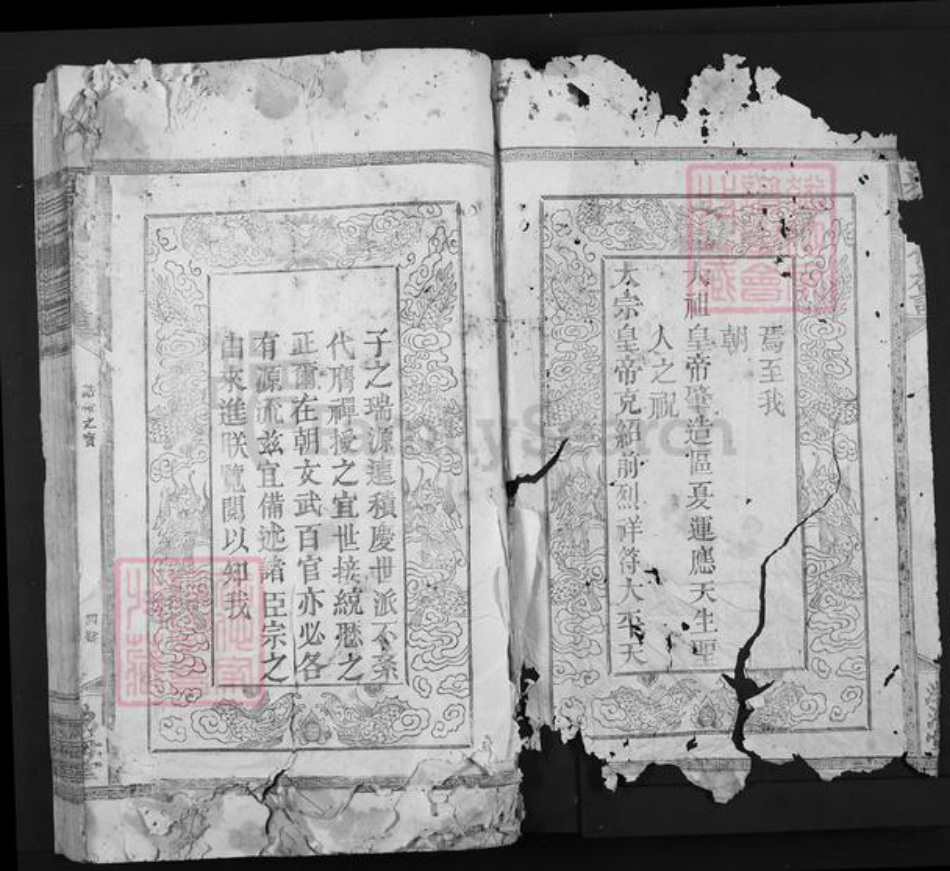 焉至我
朝
太祖皇帝肇造區夏運應天生聖
人之祝
太宗皇帝克紹前烈祥符太平天
子之瑞源遠積慶世派不紊
代膺禪授之宜世接統歷之
正爾在朝文武百官亦必各
有源流茲宜備述諸臣宗之
由來進朕覽閱以知我
FamilySearch